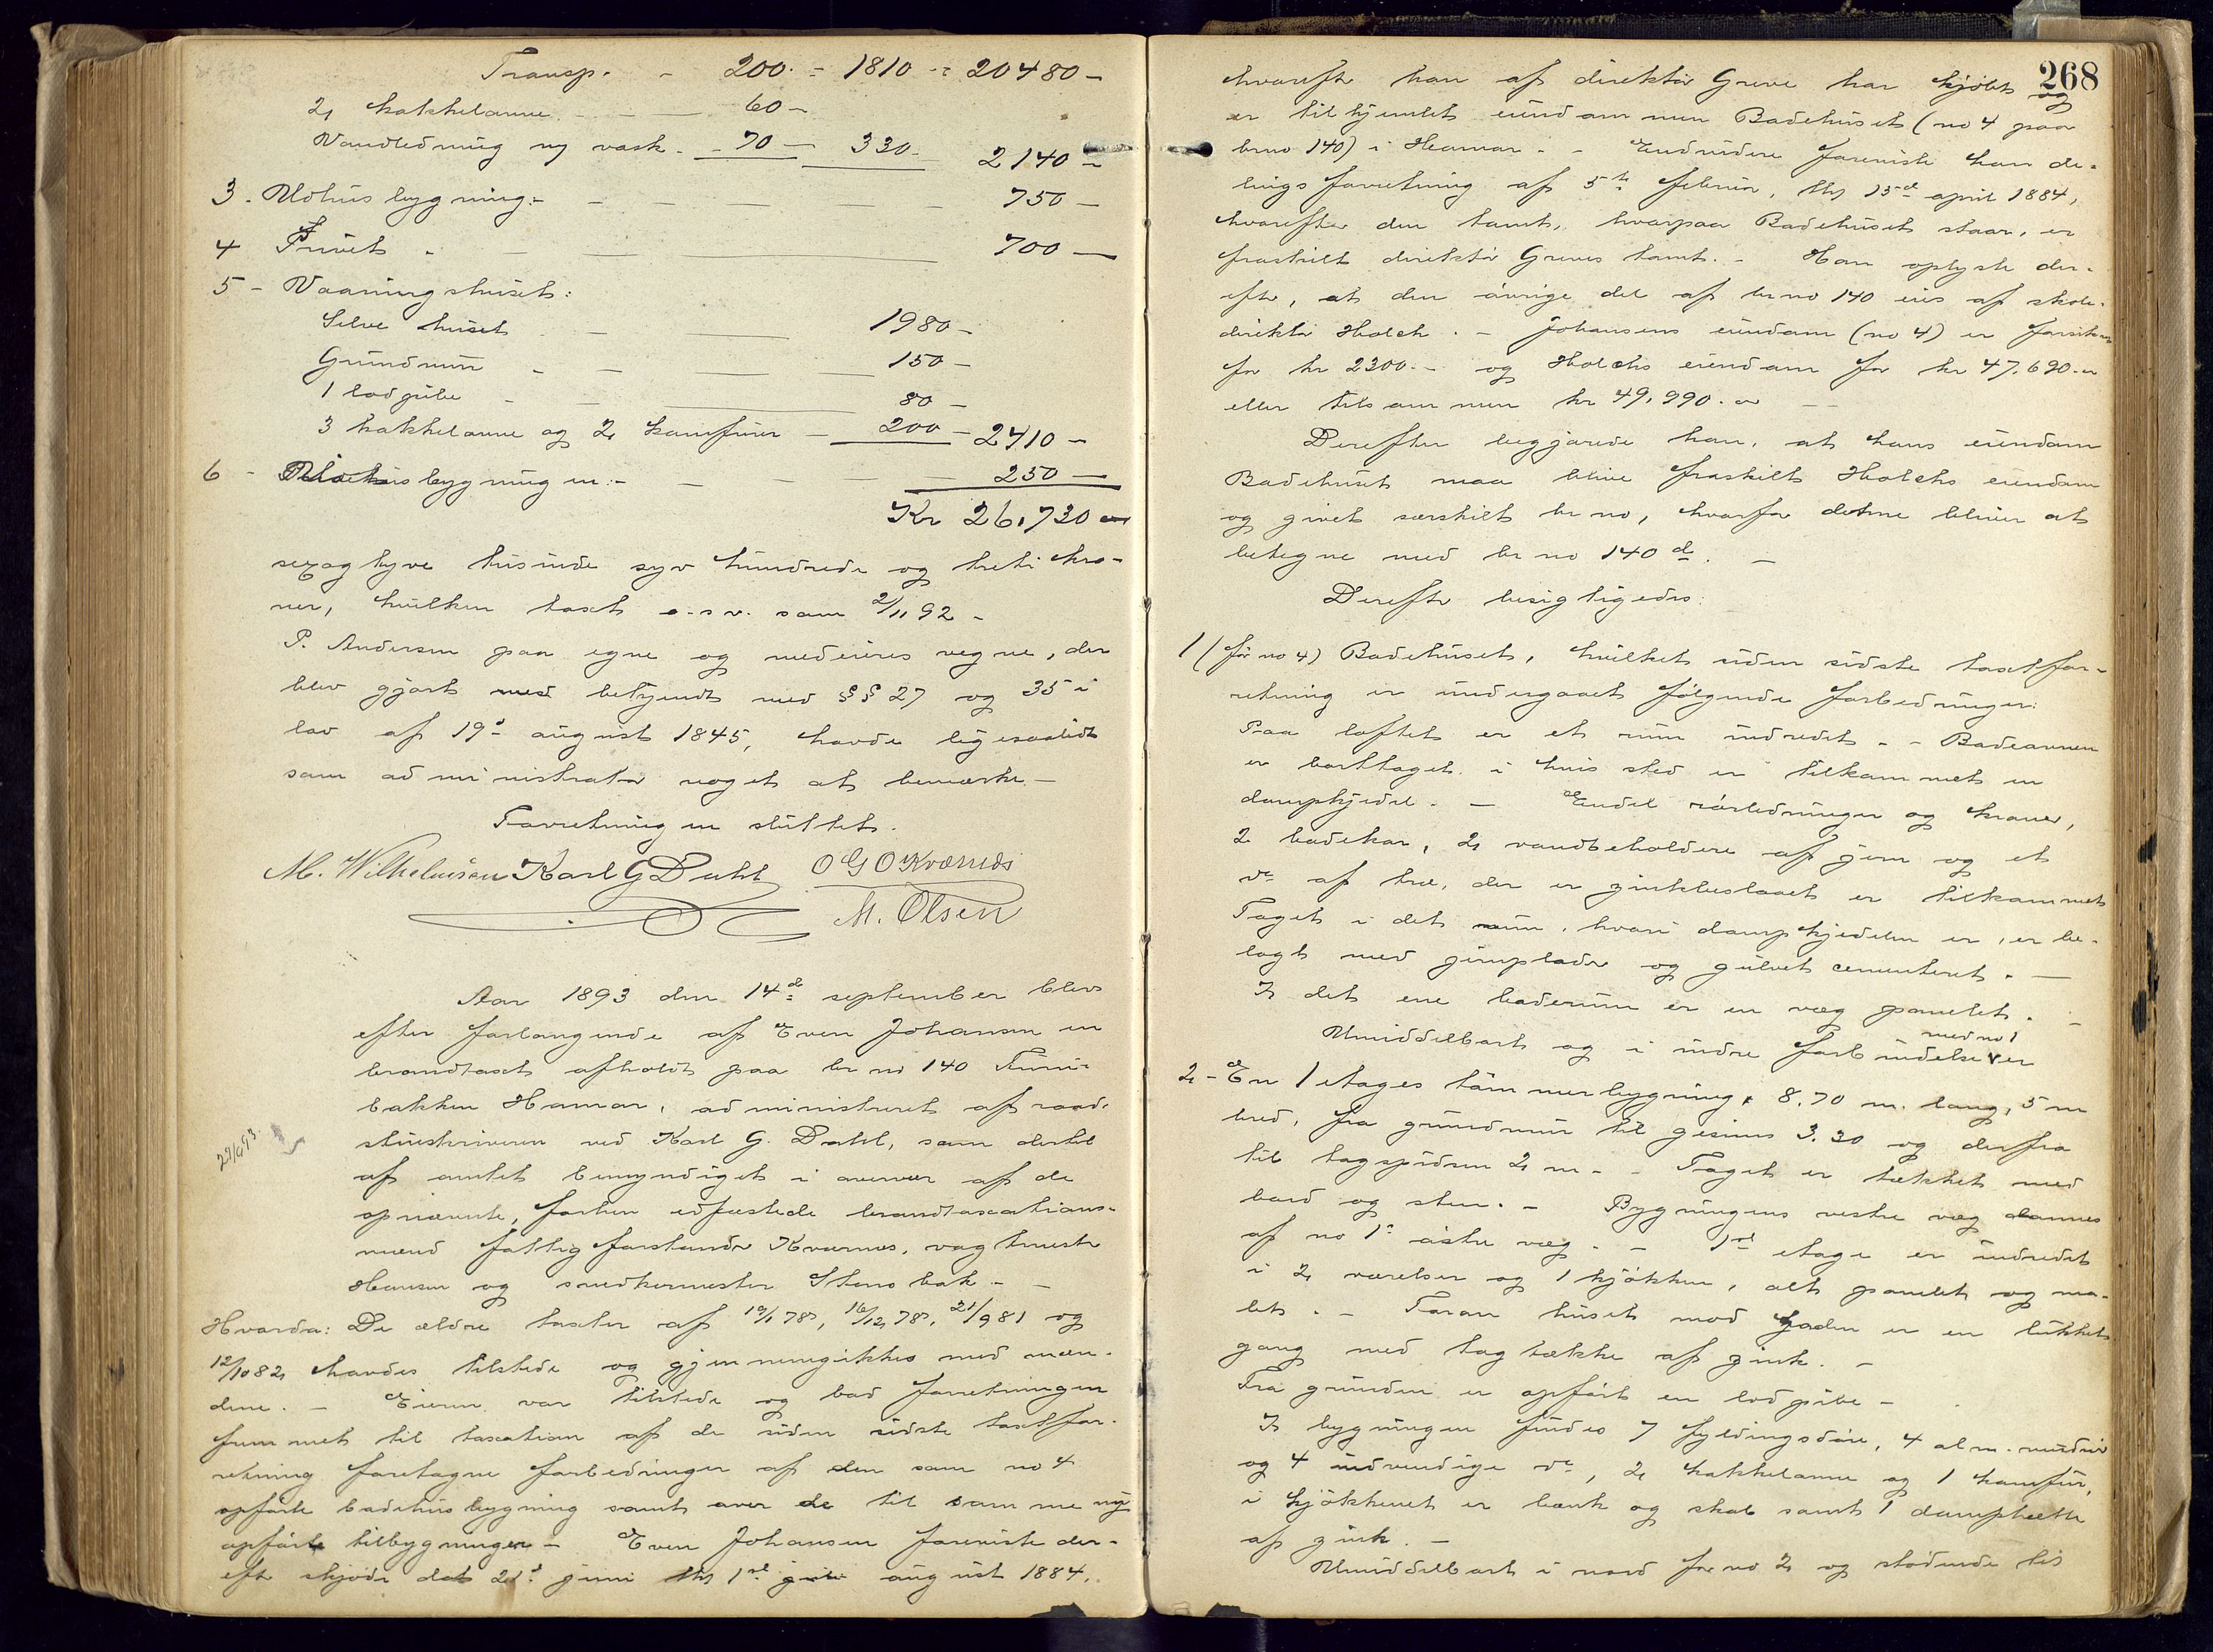 Transp. - 200.- 1810 - 20480 -
2 kakkelovne - - 60 -
Vandledning og vask - 70 - 330 - 2140 -
3. Udhusbygning: - - - - 750 -
4 Privet - - - - 700 -
5 - Vaaningshuset:
Selve huset - - 1980 -
Grundmur - - - 150 -
1 lodpibe - - 80 -
3 kakkelovne og 2 komfurer - 200 - 2410 -
6 - Udhusbygningen: - - - - 250 -
Kr 26,730
sexogtyve tusinde syv hundrede og treti kro-
ner, hvilken taxt o.s.v. som 2/11 92 -
P. Andersen paa egne og medeieres vegne, der
blev gjort med bekjendt med §§ 27 og 35 i
lov af 19d august 1845, havde ligesaalidt
som administrator noget at bemærke -
Forretningen sluttet.
M. Wilhelmsen Karl G Dahl O G O Kværnes
M. Olsen
Aar 1893 den 14de september blev
efter forlangende af Even Johansen en
brandtaxt afholdt paa br no 140 Furu-
bakken Hamar, administreret af raad-
stueskriveren ved Karl G. Dahl, som dertil
22/9 93.
af amtet bemyndiget i overvær af de
opnævnte, forhen edfæstede brandtaxations-
mænd fattigforstander Kværnes, vagtmester
Hansen og snedkermester Stensbak - -
Hvorda: De ældre taxter af 19/1 78, 16/12 78, 21/9 81 og
12/10 82 havdes tilstede og gjennemgikkes med mæn-
dene. - Eieren var tilstede og bad forretningen
fremmet til taxation af de siden sidste taxtfor-
retning foretagne forbedringer af den som no 4
opførte badehusbygning samt over de til samme ny
opførte tilbygninger - Even Johansen foreviste der-
efter skjøde dat 21d juni thl 1ste august 1884,
268
hvorefter han af direktør Greve har kjøbt og
er tilhjemlet eiendommen Badehuset (no 4 paa
brno 140) i Hamar - - Endvidere foreviste han de-
lingsforretning af 5te februar, thl 15de april 1884,
hvorefter den tomt, hvorpaa Badehuset staar, er
fraskilt direktør Greves tomt. - Han oplyste der-
efter, at den øvrige del af br no 140 eies af skole-
direktør Holch. - Johansens eiendom (no 4) er forsikret
for kr 2300.- og Holchs eiendom for kr 47.690.-
eller tilsammen kr 49,990.- -
Derefter begjærede han, at hans eiendom
Badehuset maa blive fraskilt Holchs eiendom
og givet særskilt br no, hvorfor denne bliver at
betegne med br no 140 d. -
Derefter besigtigedes:
1 (før no 4) Badehuset, hvilket siden sidste taxtfor-
retning er undergaaet følgende forbedringer:
Paa loftet er et rum indredet - - Badeovnen
er borttaget, i hvis sted er tilkommet en
dampkjedel. - Endel rørledninger og kraner,
2 badekar, 2 vandbeholdere af jern og et
do af træ, der er zinkbeslaaet er tilkommet
Taget i det rum, hvori dampkjedelen er, er be-
lagt med jernplader og gulvet cementeret. -
I det ene baderum er en væg panelet. -
Umiddelbart og i indre forbindelse med no 1 er
2 - En 1 etages tømmerbygning, 8.70 m. lang, 5 m
bred, fra grundmur til gesims 3.30 og derfra
til tagspidsen 2 m - - Taget er tækket med
bord og sten. - Bygningens vestre væg dannes
af no 1s østre væg. - 1ste etage er indredet
i 2 værelser og 1 kjøkken, alt panelet og ma-
let. - Foran huset mod gaden er en lukket
gang med tagtække af zink. -
Fra grunden er opført en lodpibe -
I bygningen findes 7 fyldingsdøre, 4 alm. vinduer
og 4 indvendige do, 2 kakkelovne og 1 komfur,
i kjøkkenet er bænk og skab samt 1 damphætte
af zink. -
Umiddelbart i nord for no 2 og stødende til